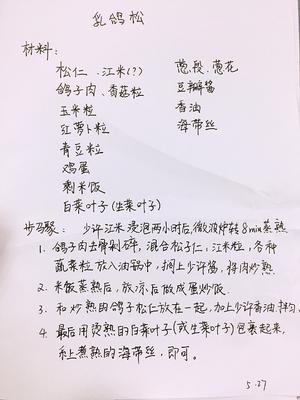 乳鸽松
材料：
松仁、江米(?)
葱段、葱花
鸽子肉、香菇粒
豆瓣酱
玉米粒
香油
红萝卜粒
海带丝
青豆粒
鸡蛋
剩米饭
白菜叶子(生菜叶子)
步骤： 少许江米浸泡两小时后,微波炉转8min蒸熟.
1. 鸽子肉去骨剁碎，混合松子仁，江米粒，各种
蔬菜粒放入油锅中，搁上少许酱，将肉炒熟
2. 米饭蒸熟后，放凉后做成蛋炒饭.
3. 和炒熟的鸽子松仁放在一起，加上少许香油，拌匀.
4. 最后用烫熟的白菜叶子(或生菜叶子)包裹起来，
系上煮熟的海带丝，即可。
5.27